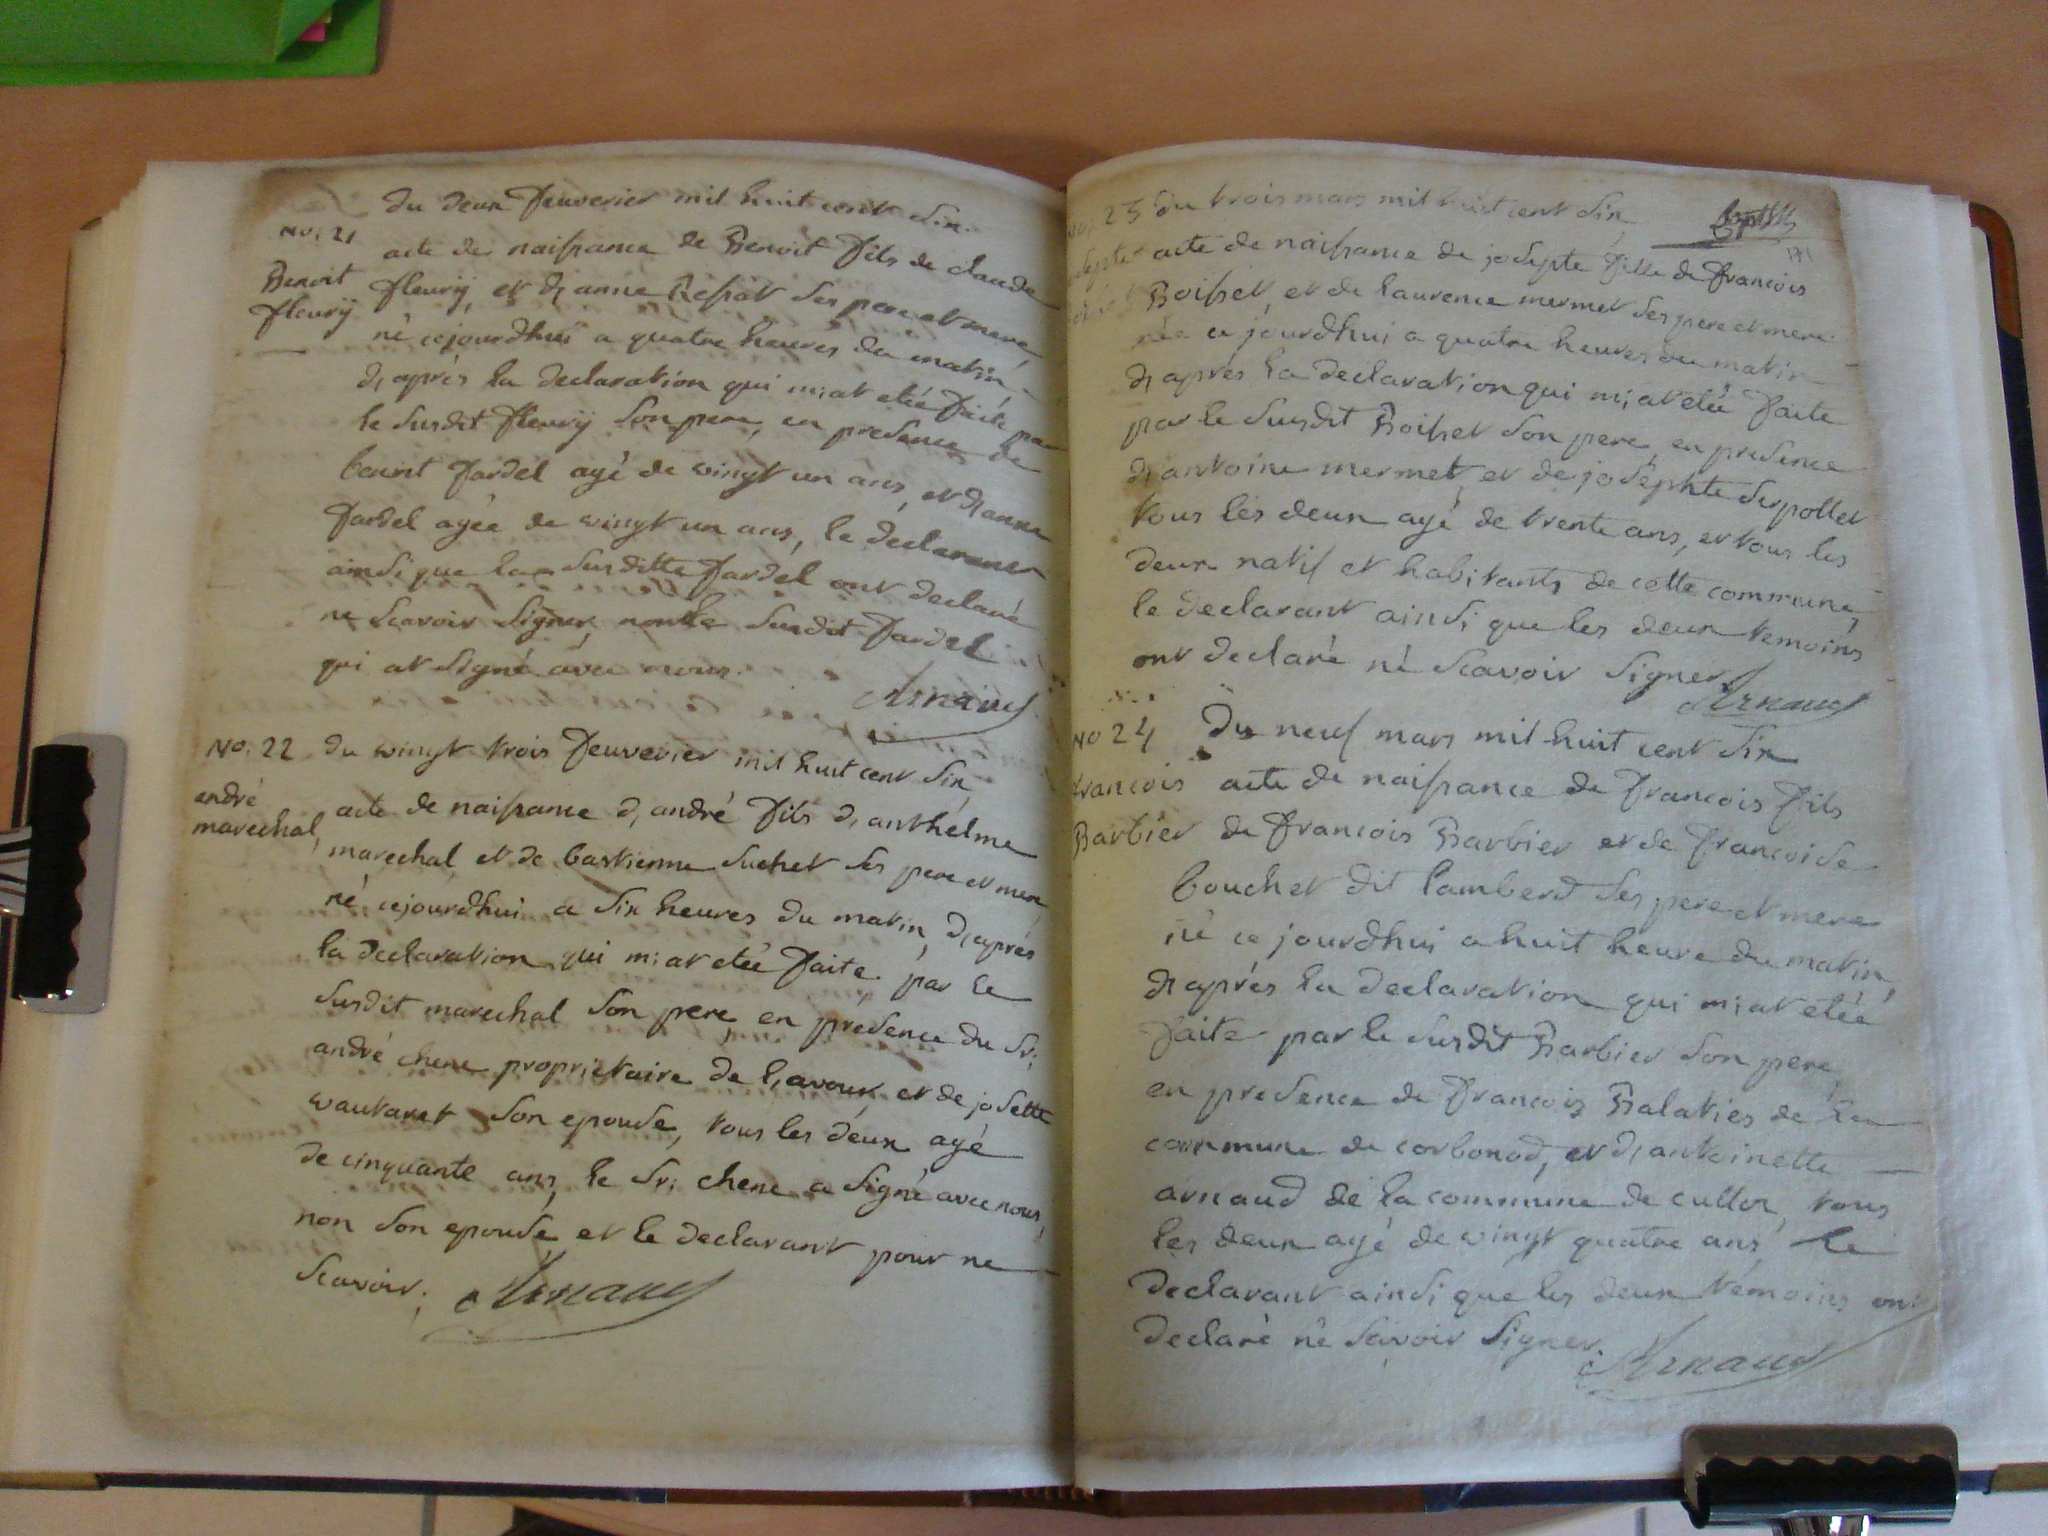 du deux feuverier mil huit cent six.
No. 21
acte de naissance de Benoit fils de claude
Benoit
fleurÿ, et d, anne Ressot ses pere et mere,
fleurÿ
né cejourdhui a quatre heures du matin
d, aprés la declaration qui m, at etée faite par
le susdit fleurÿ son pere, en presence de
benoit fardel agé de vingt un ans, et d, anne
fardel agée de vingt un ans, le declarent
ainsi que la susditte fardel ont declaré
ne scavoir signer, non le susdit fardel
qui at signé avec nous.
Arnaud
No. 22 du vingt trois feuverier mil huit cent six,
andré
marechal,
acte de naissance d, andré fils d, anthélme
marechal et de bastienne suchet ses pere et mere,
né cejourdhui a six heures du matin, d, aprés
la declaration qui m, at etée faite par le
susdit marechal son pere, en presence du Sr.
andré chene proprietaire de lavour et de josette
vautaret son epouse, tous les deux agé
de cinquante ans, le Sr. chene a signé avec nous,
non son epouse, et le declarant pour ne
scavoir.
Arnaud
No. 23 du trois mars mil huit cent six,
171
acte de naissance de josepte fille de francois
Boisset, et de laurence mermet ses pere et mere
née ce jourdhui a quatre heures du matin
d, aprés la declaration qui m, at etée faite
par le susdit Boisset son pere, en presence
d, antoine mermet, et de josephte serpollet
tous les deux agé de trente ans, et tous les
deux natif et habitants de cette commune,
le declarant ainsi que les deux temoins
ont declaré né scavoir signer
Arnaud
No 24 Du neuf mars mil huit cent six
francois acte de naissance de francois fils
Barbier de francois Barbier et de francoise
bouchet dit lamberd ses pere et mere
né ce jourdhui a huit heure du matin,
d, aprés la declaration qui m, at etéé
faite par le susdit Barbier son pere,
en presence de francois Balaties de la
commune de corbonod, et d, antoinette
arnaud de la commune de culloz, tous
les deux agé de vingt quatre ans le
declarant ainsi que les deux témoins ont
declaré né scavoir signer.
Arnaud